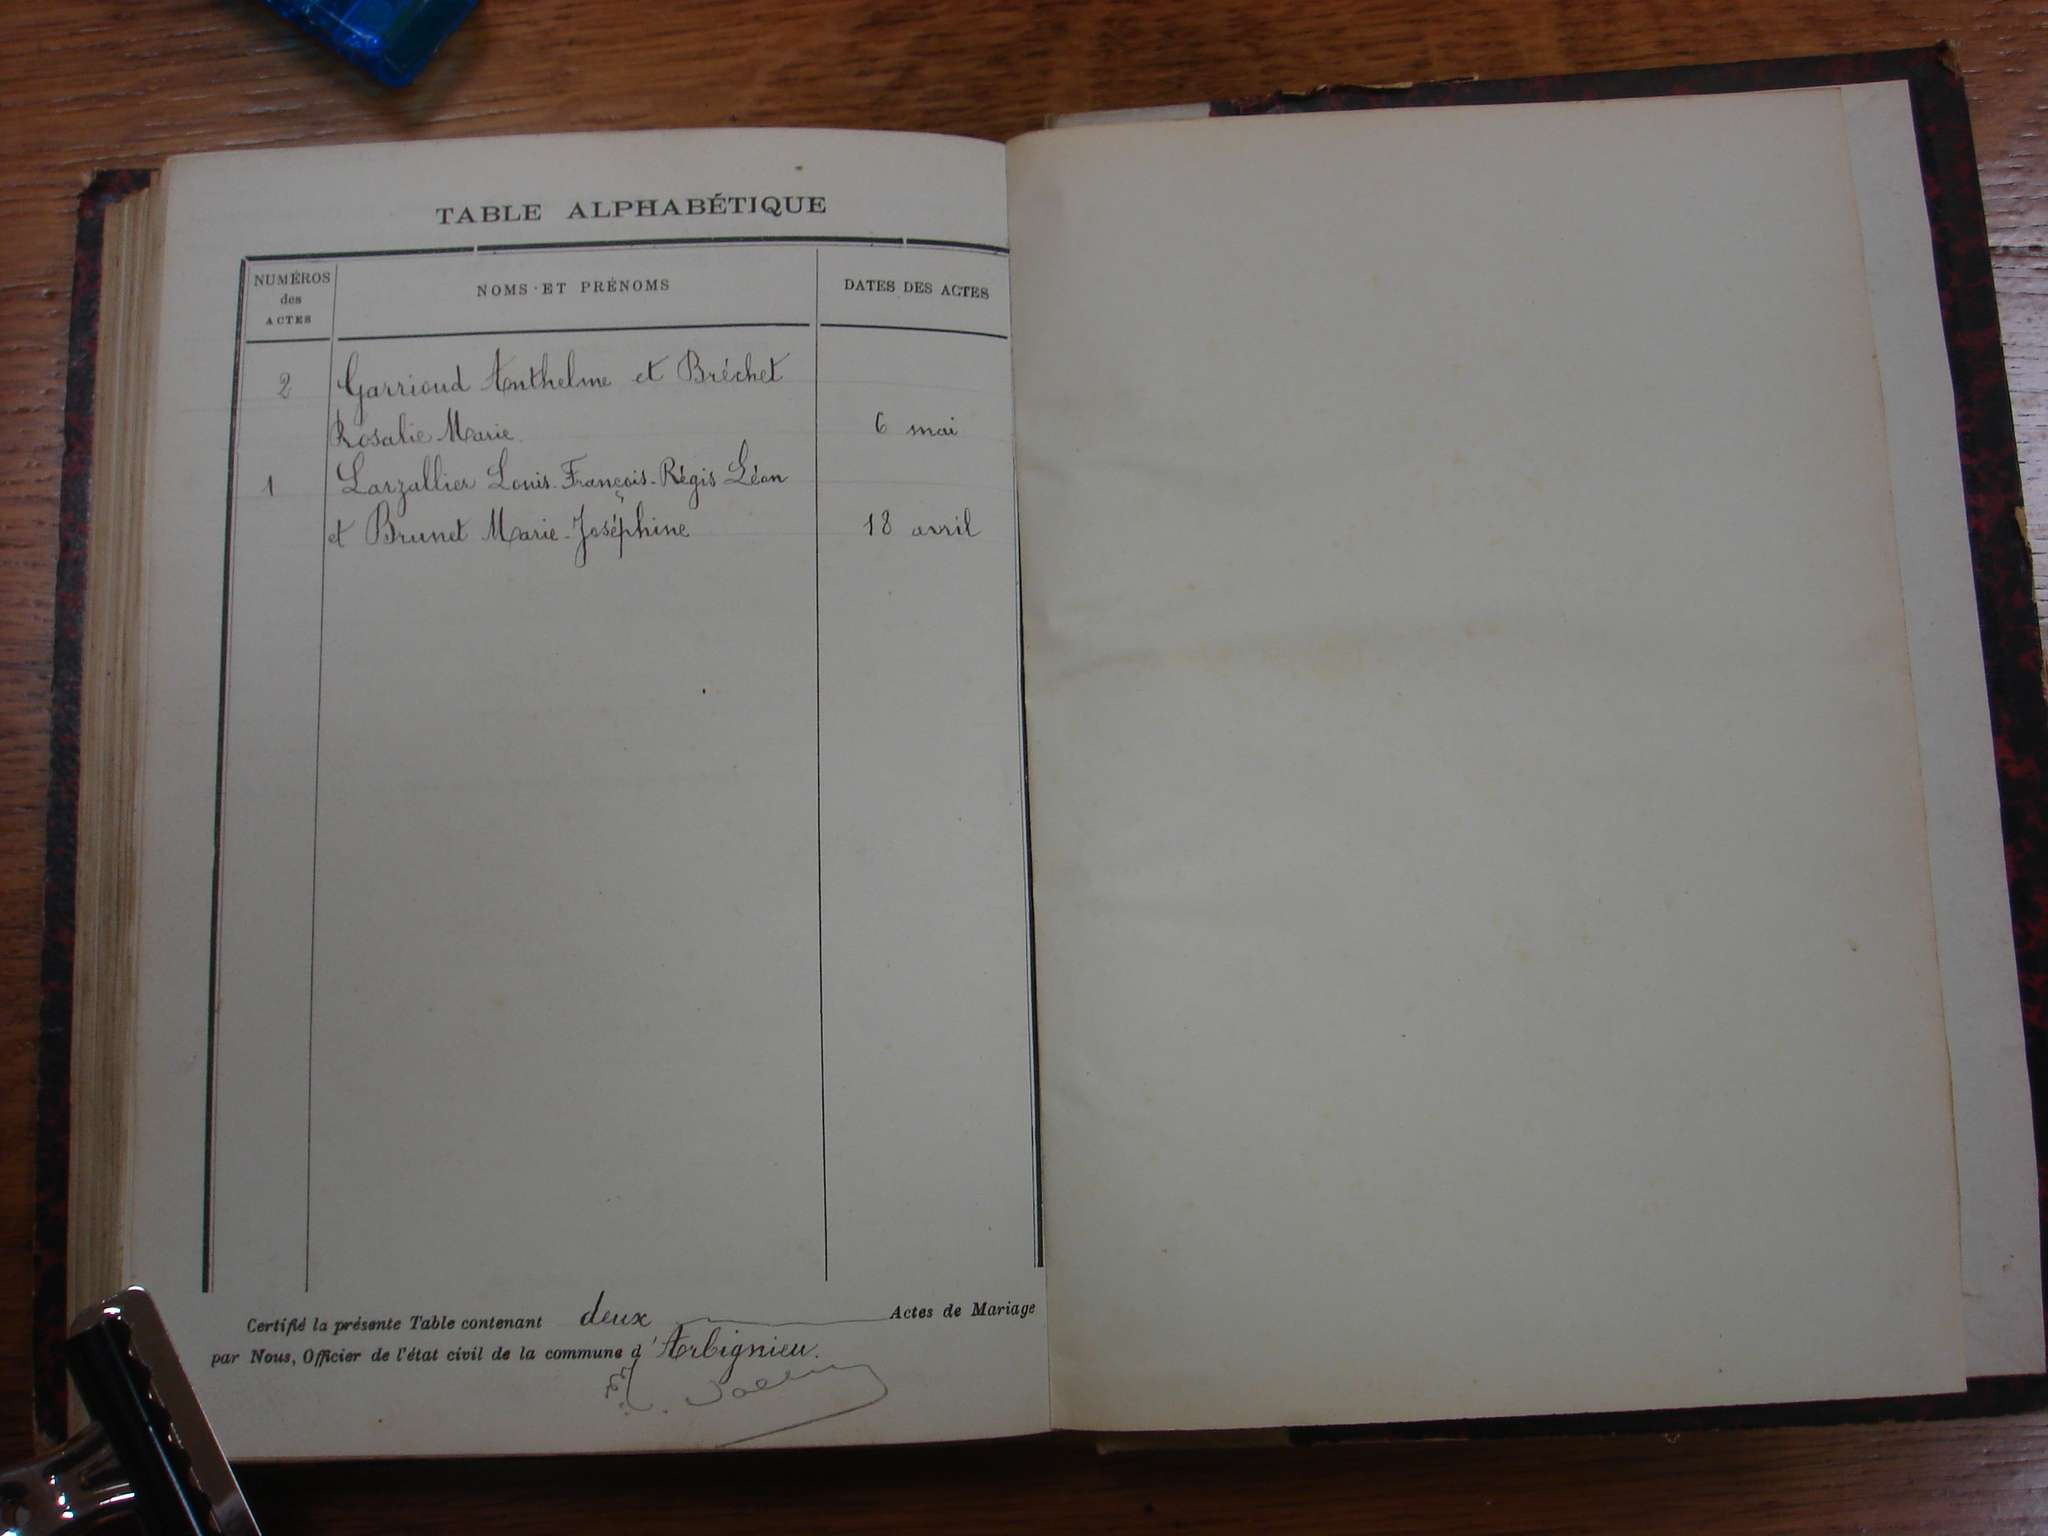 TABLE ALPHABÉTIQUE
NUMÉROS des ACTES
NOMS ET PRÉNOMS
DATES DES ACTES
2 Garrioud Anthelme et Bréchet
Rosalie Marie 6 mai
1 Larzallier Louis-François-Régis Léon
et Brunet Marie-Joséphine 18 avril
Certifié la présente Table contenant deux Actes de Mariage
par Nous, Officier de l'état civil de la commune d'Arbignieu.